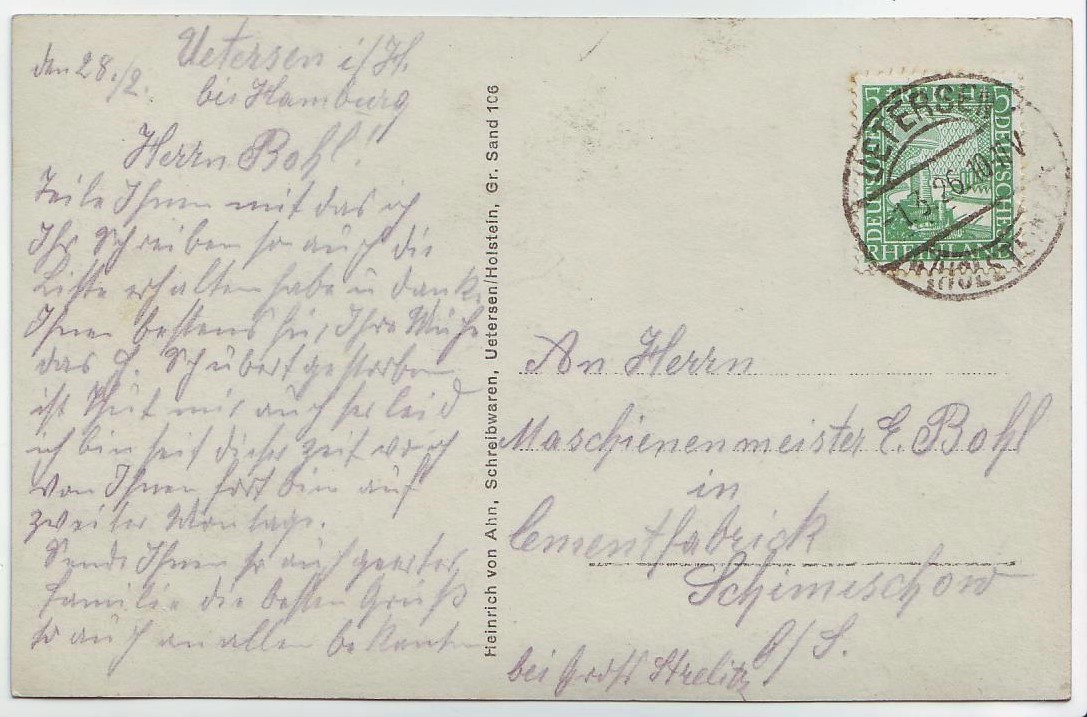 den 28./2. Uetersen i/H.
bei Hamburg
Herrn Bohl!
Teile Ihnen mit das ich
Ihr Schreiben so auch die
Liste erhalten habe u danke
Ihnen bestens für Ihre Mühe
das H. Schubert gestorben
ist thut mir auch ser leid
ich bin seit dieser zeit wo ich
von Ihnen fort bin auf
zweiter Montage.
Sende Ihnen so auch geerter
Familie die besten Grüße
so auch an allen bekannten
Heinrich von Ahn, Schreibwaren, Uetersen/Holstein, Gr. Sand 106
DEUTSCHES REICH
5 5
RHEINLAND
UETERSEN
-1.3.26.10-11V
(HOLSTEIN)
An Herrn
Maschienenmeister E. Bohl
in
Cementfabrick
Schimischow
O/S.
bei Groß Strelitz